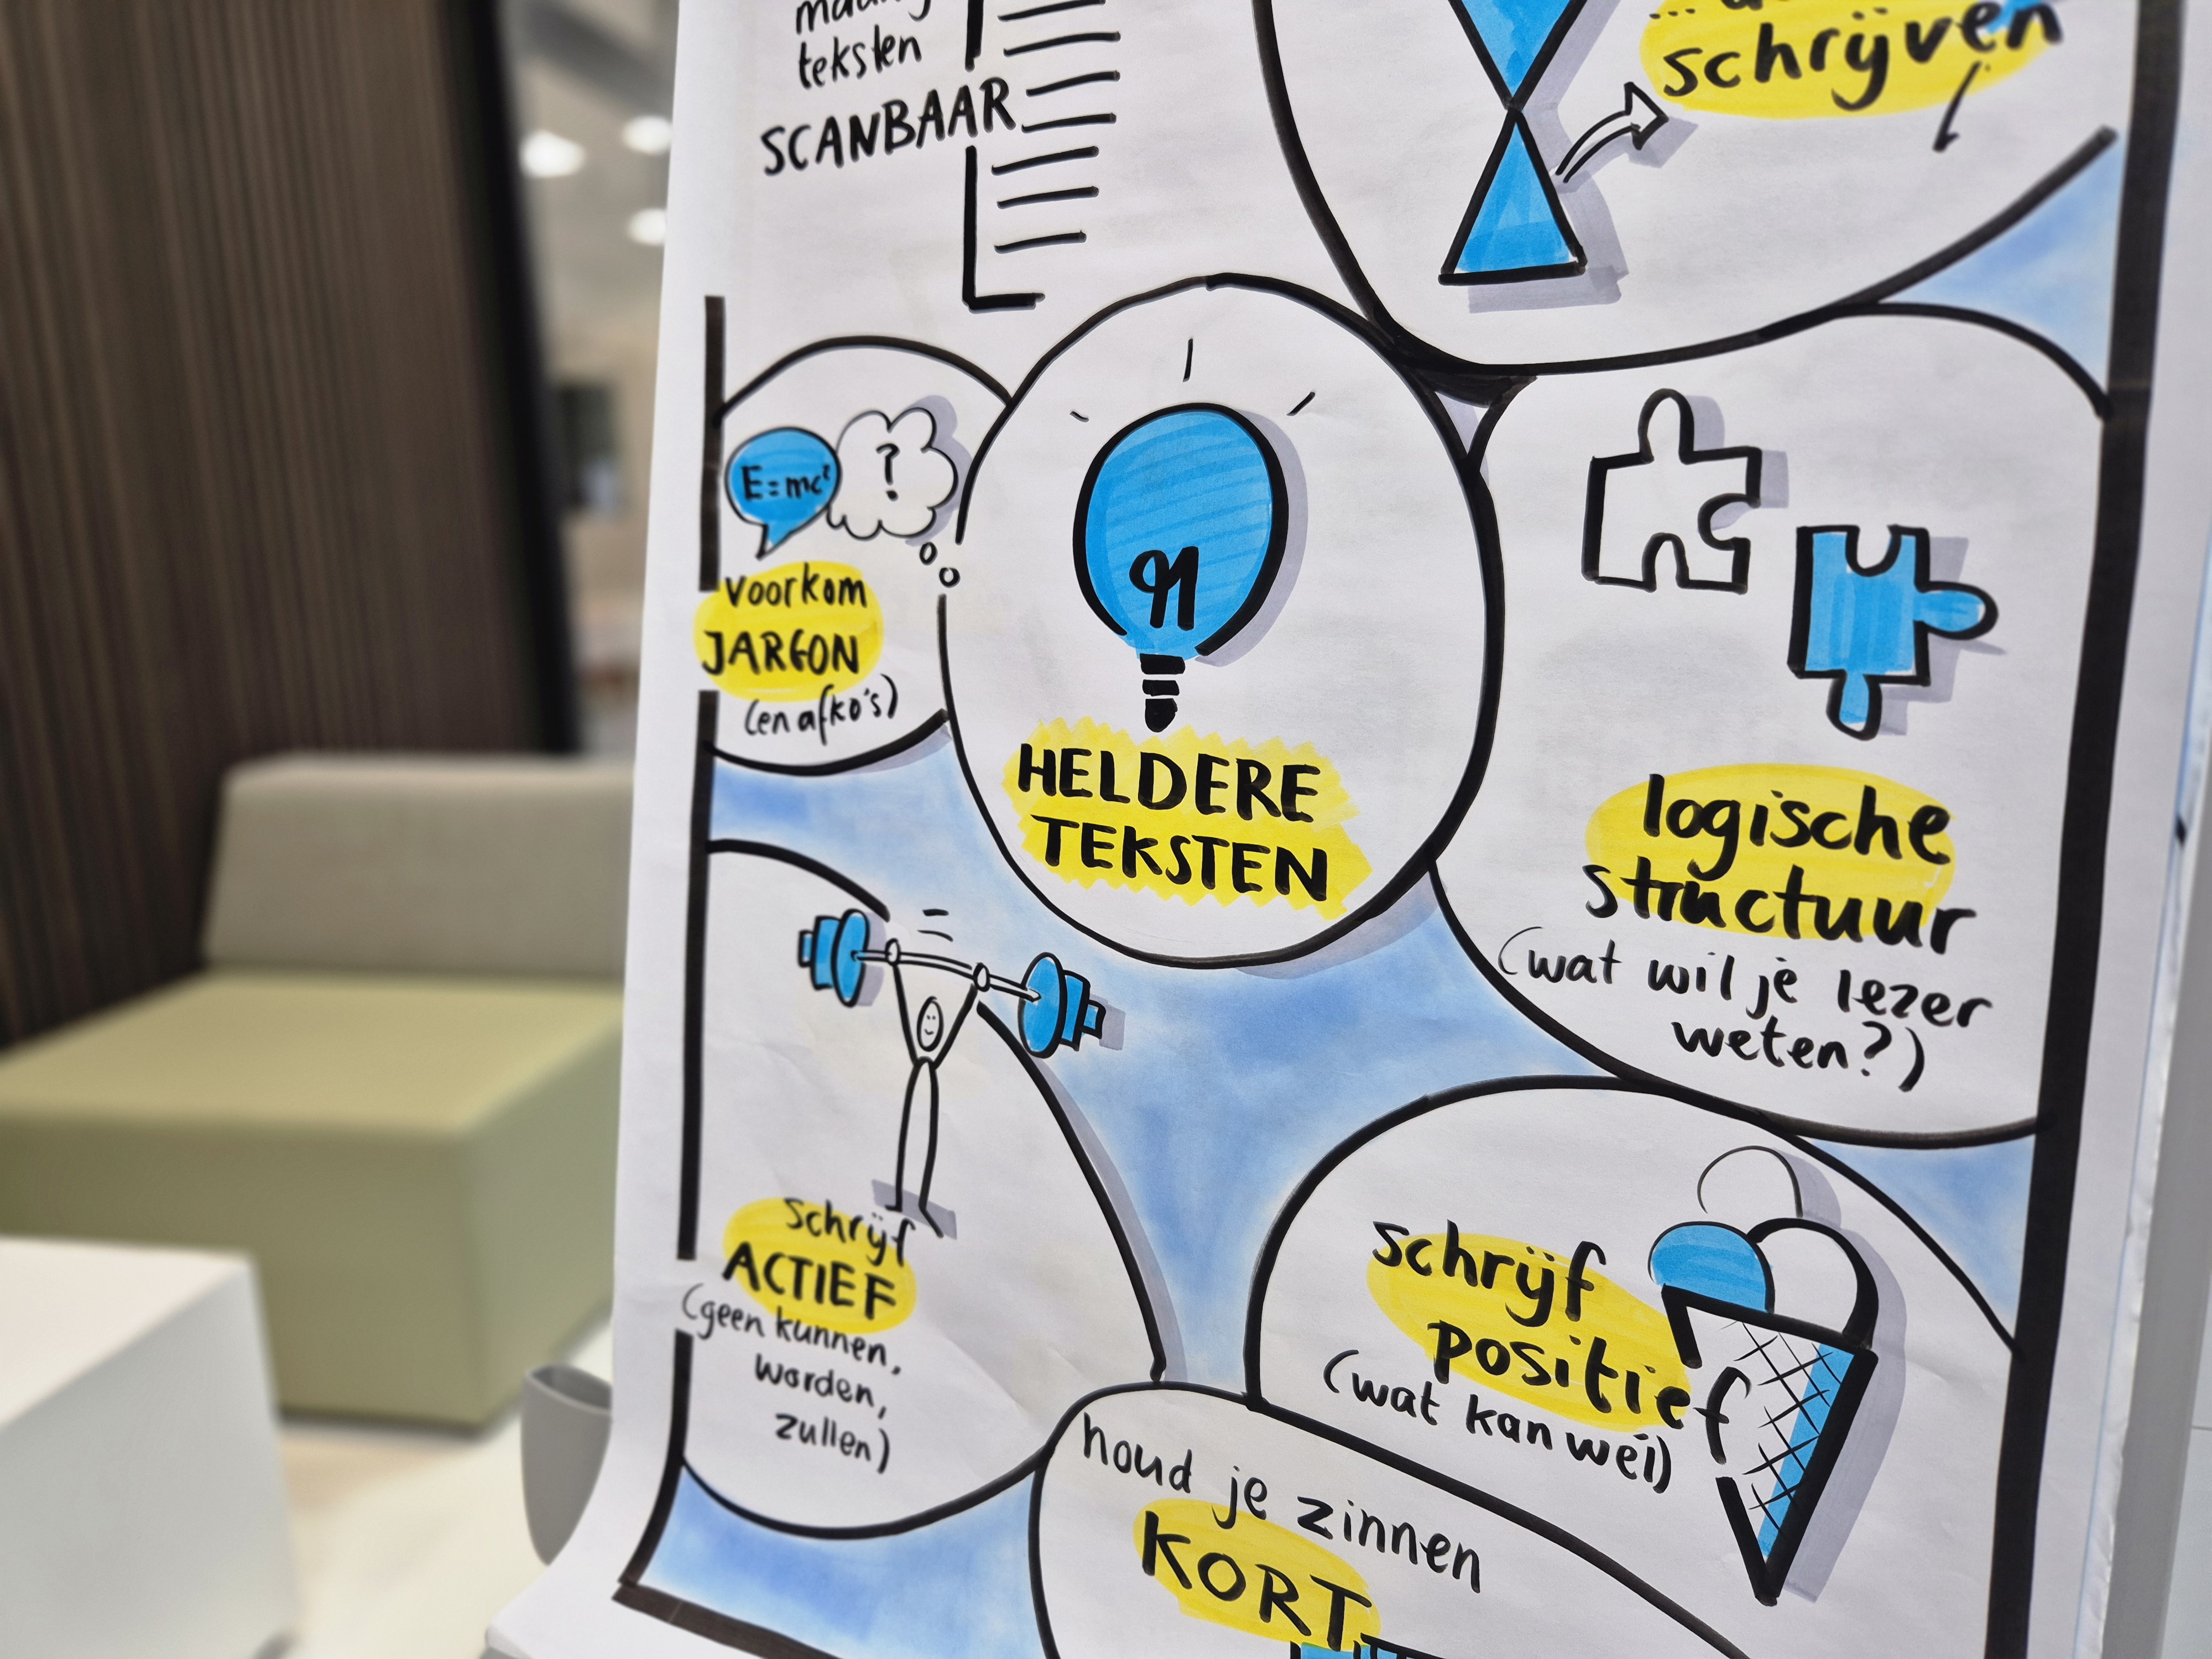 teksten
SCANBAAR
schrijven
E=mc²
?
voorkom
JARGON
(en afko's)
HELDERE
TEKSTEN
logische
structuur
(wat wil je lezer
weten?)
schrijf
ACTIEF
(geen kunnen,
worden,
zullen)
schrijf
positief
(wat kan wél)
houd je zinnen
KORT